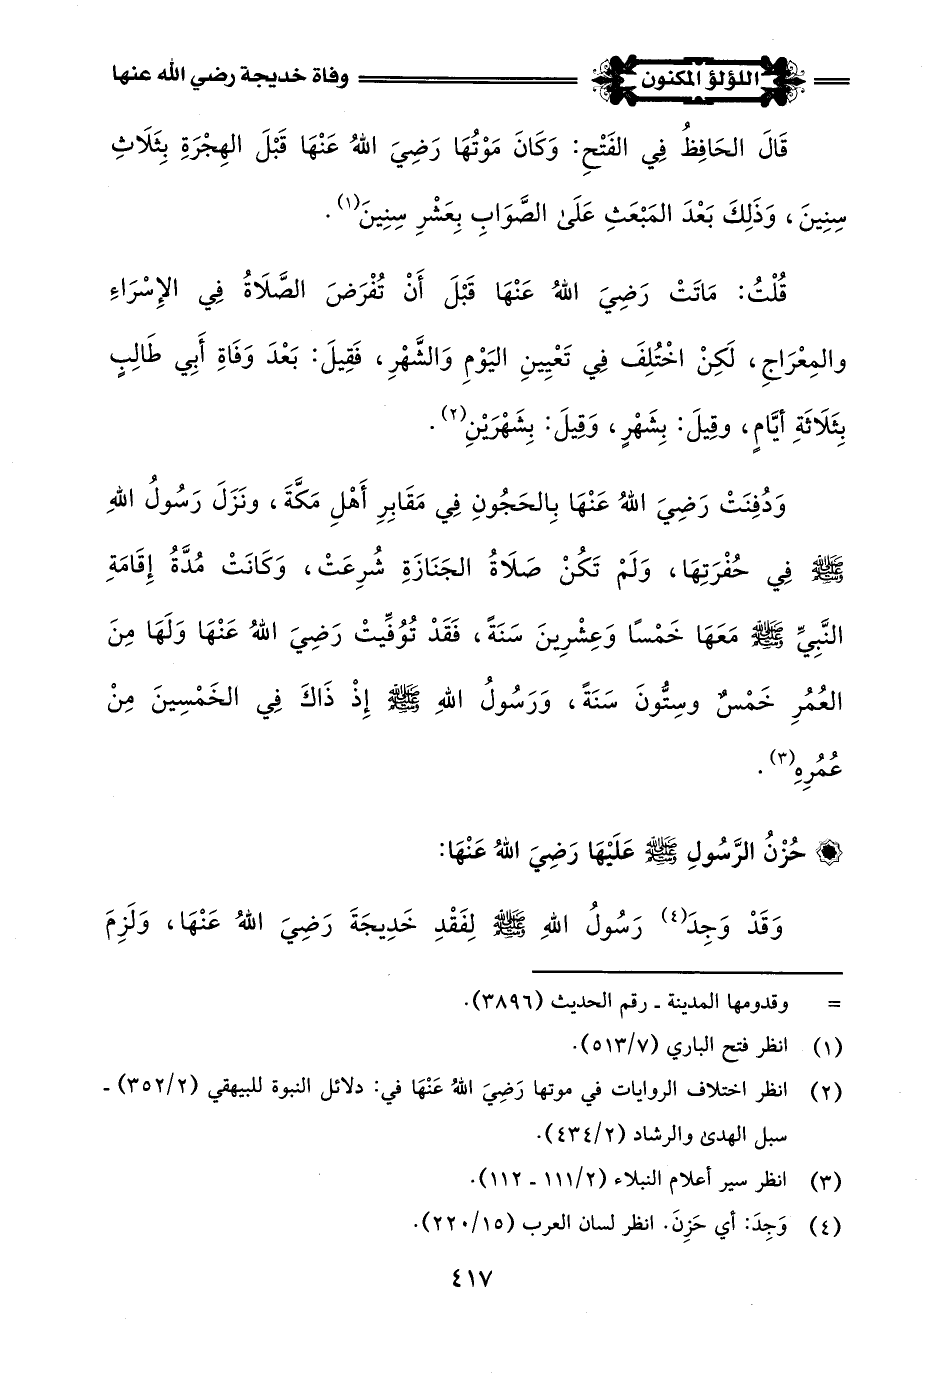 اللؤلؤ المكنون وفاة خديجة رضي الله عنها
قَالَ الحَافِظُ فِي الفَتْحِ: وَكَانَ مَوْتُهَا رَضِيَ اللهُ عَنْهَا قَبْلَ الهِجْرَةِ بِثَلَاثِ
سِنِينَ، وَذَلِكَ بَعْدَ المَبْعَثِ عَلَى الصَّوَابِ بِعَشْرِ سِنِينَ(١).
قُلْتُ: مَاتَتْ رَضِيَ اللهُ عَنْهَا قَبْلَ أَنْ تُفْرَضَ الصَّلَاةُ فِي الإِسْرَاءِ
والمِعْرَاجِ، لَكِنْ اخْتُلِفَ فِي تَعْيِينِ اليَوْمِ وَالشَّهْرِ، فَقِيلَ: بَعْدَ وَفَاةِ أَبِي طَالِبٍ
بِثَلَاثَةِ أيَّامٍ، وقِيلَ: بِشَهْرٍ، وَقِيلَ: بِشَهْرَيْنِ(٢).
وَدُفِنَتْ رَضِيَ اللهُ عَنْهَا بِالحَجُونِ فِي مَقَابِرِ أَهْلِ مَكَّةَ، ونَزَلَ رَسُولُ اللهِ
ﷺ فِي حُفْرَتِهَا، وَلَمْ تَكُنْ صَلَاةُ الجَنَازَةِ شُرِعَتْ، وَكَانَتْ مُدَّةُ إِقَامَةِ
النَّبِيِّ ﷺ مَعَهَا خَمْسًا وَعِشْرِينَ سَنَةً، فَقَدْ تُوُفِّيَتْ رَضِيَ اللهُ عَنْهَا وَلَهَا مِنَ
العُمُرِ خَمْسٌ وسِتُّونَ سَنَةً، وَرَسُولُ اللهِ ﷺ إِذْ ذَاكَ فِي الخَمْسِينَ مِنْ
عُمُرِهِ(٣).
حُزْنُ الرَّسُولِ ﷺ عَلَيْهَا رَضِيَ اللهُ عَنْهَا:
وَقَدْ وَجِدَ(٤) رَسُولُ اللهِ ﷺ لِفَقْدِ خَدِيجَةَ رَضِيَ اللهُ عَنْهَا، وَلَزِمَ
= وقدومها المدينة ـ رقم الحديث (٣٨٩٦).
(١) انظر فتح الباري (٥١٣/٧).
(٢) انظر اختلاف الروايات في موتها رَضِيَ اللهُ عَنْهَا في: دلائل النبوة للبيهقي (٣٥٢/٢) ـ
سبل الهدى والرشاد (٤٣٤/٢).
(٣) انظر سير أعلام النبلاء (١١١/٢ ـ ١١٢).
(٤) وَجِدَ: أي حَزِنَ. انظر لسان العرب (٢٢٠/١٥).
٤١٧